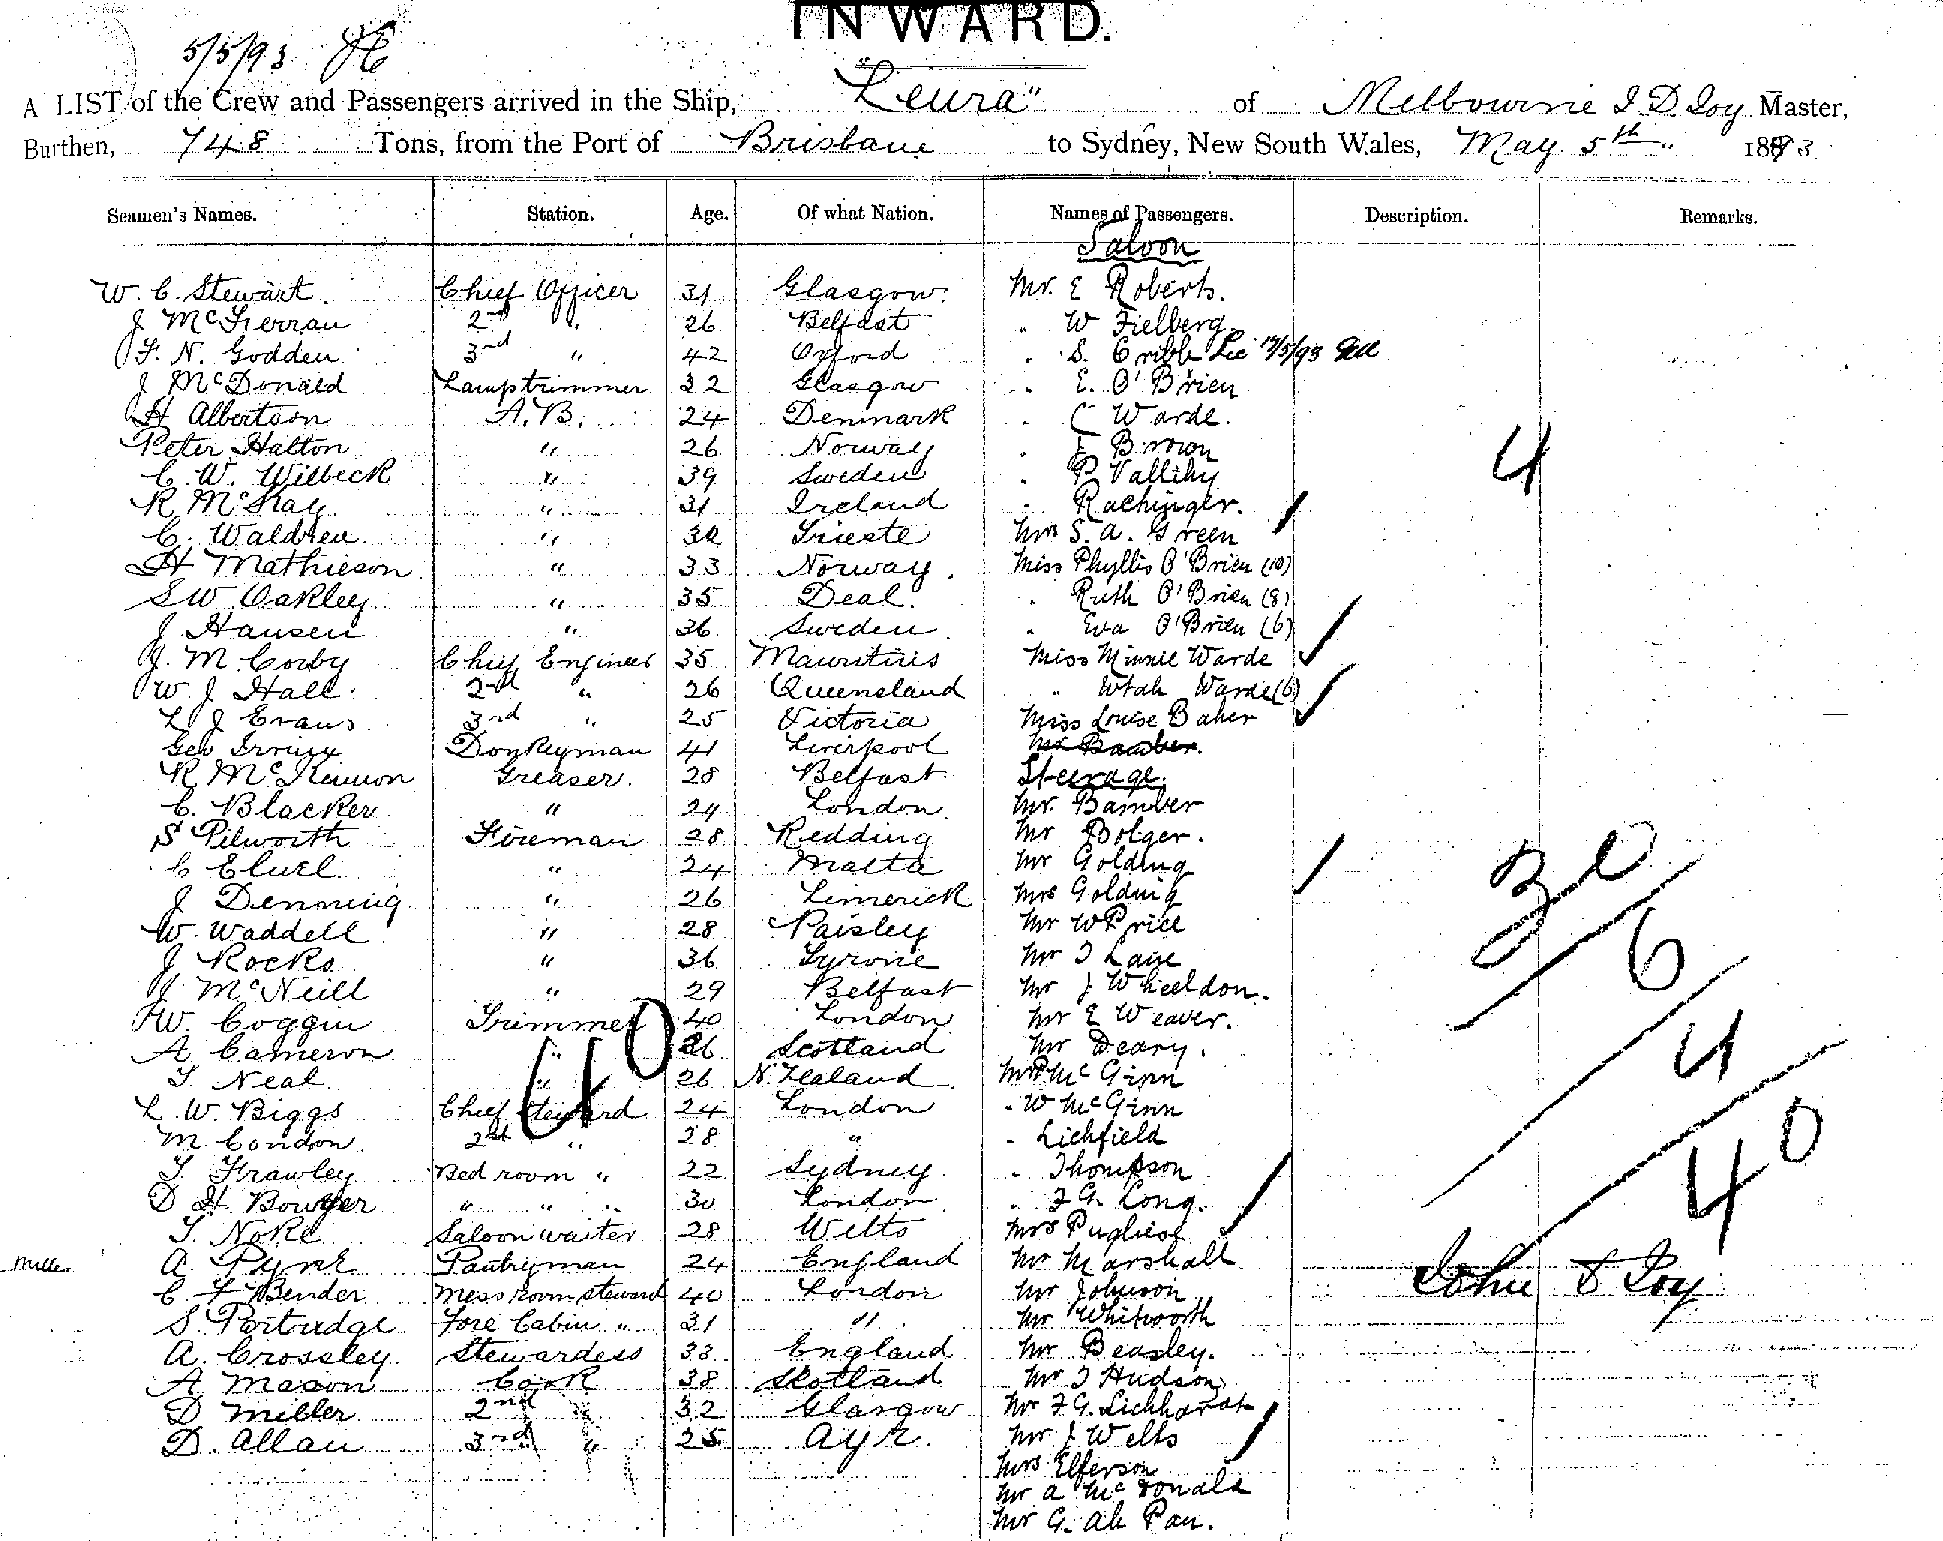 INWARD.
5/5/93
A LIST of the Crew and Passengers arrived in the Ship, "Leura" of Melbourne J D Joy Master,
Burthen, 748 Tons, from the Port of Brisbane to Sydney, New South Wales, May 5th 1893
Seamen's Names. Station. Age. Of what Nation. Names of Passengers. Description. Remarks.
Saloon
W. C. Stewart. Chief Officer 31 Glasgow. Mr. E Roberts.
J McFerran 2nd " 26 Belfast " W Fielberg
F. N. Godden 3rd " 42 Oxford " S. Cribb 12/5/93
J McDonald Lamptrimmer 32 Glasgow " E. O'Brien
H Albertson A.B. 24 Denmark " C Warde.
Peter Halton " 26 Norway " J Brown 4
C. W. Wilbeck " 39 Sweden " P Vallihy
R McKay " 31 Ireland " Rachinger.
C. Waldren " 32 Trieste Mrs S. A. Green
H Mathieson " 33 Norway. Miss Phyllis O'Brien (10)
S W Oakley " 35 Deal. " Ruth O'Brien (8)
J Hansen " 36 Sweden " Eva O'Brien (6)
J. M. Corby Chief Engineer 35 Mauritius Miss Minnie Warde
W. J. Hall. 2nd " 26 Queensland " Utah Warde (6)
L J Evans 3rd " 25 Victoria Miss Louise Baker
Geo Irving Donkeyman 41 Liverpool Mr Bamber.
R McKinnon Greaser. 28 Belfast Steerage.
C. Blacker " 24 London. Mr. Bamber
S Pilworth Fireman 28 Redding Mr Bolger.
C Eluel " 24 Malta Mr Golding 30
J Denning " 26 Limerick Mrs Golding
W. Waddell " 28 Paisley Mr W Price 6
J Rocks " 36 Tyrone Mr T Lane
J McNeill " 29 Belfast Mr J Wheeldon.
W. Coggin Trimmer 40 London Mr E Weaver.
A Cameron " 26 Scotland Mr Deary. 4
T Neal. " 26 N. Zealand Mr P McGinn
40
L. W. Biggs Chief Steward 24 London " W McGinn
M Condon 2nd " 28 " " Lichfield 40
T. Frawley Bed room " 22 Sydney. " Thompson
D H Bowyer " " " 30 London " F G. Long.
T. Noke Saloon waiter 28 Wilts Mrs Pugliese
Miller A. Pyne Pantryman 24 England Mr Marshall John D Joy
C F Bender Mess room steward 40 London Mr Johnson
S. Partridge Fore Cabin " 31 " Mr Whitworth
A. Crossley Stewardess 33 England Mr Beasley.
A Mason Cook 38 Scotland Mr T Hudson
D Miller 2nd " 32 Glasgow Mr F G. Lichhardt
D. Allan 3rd " 25 Ayr. Mr J Wells
Mrs Elferson
Mr A McDonald
Mr G. Ah Pan.